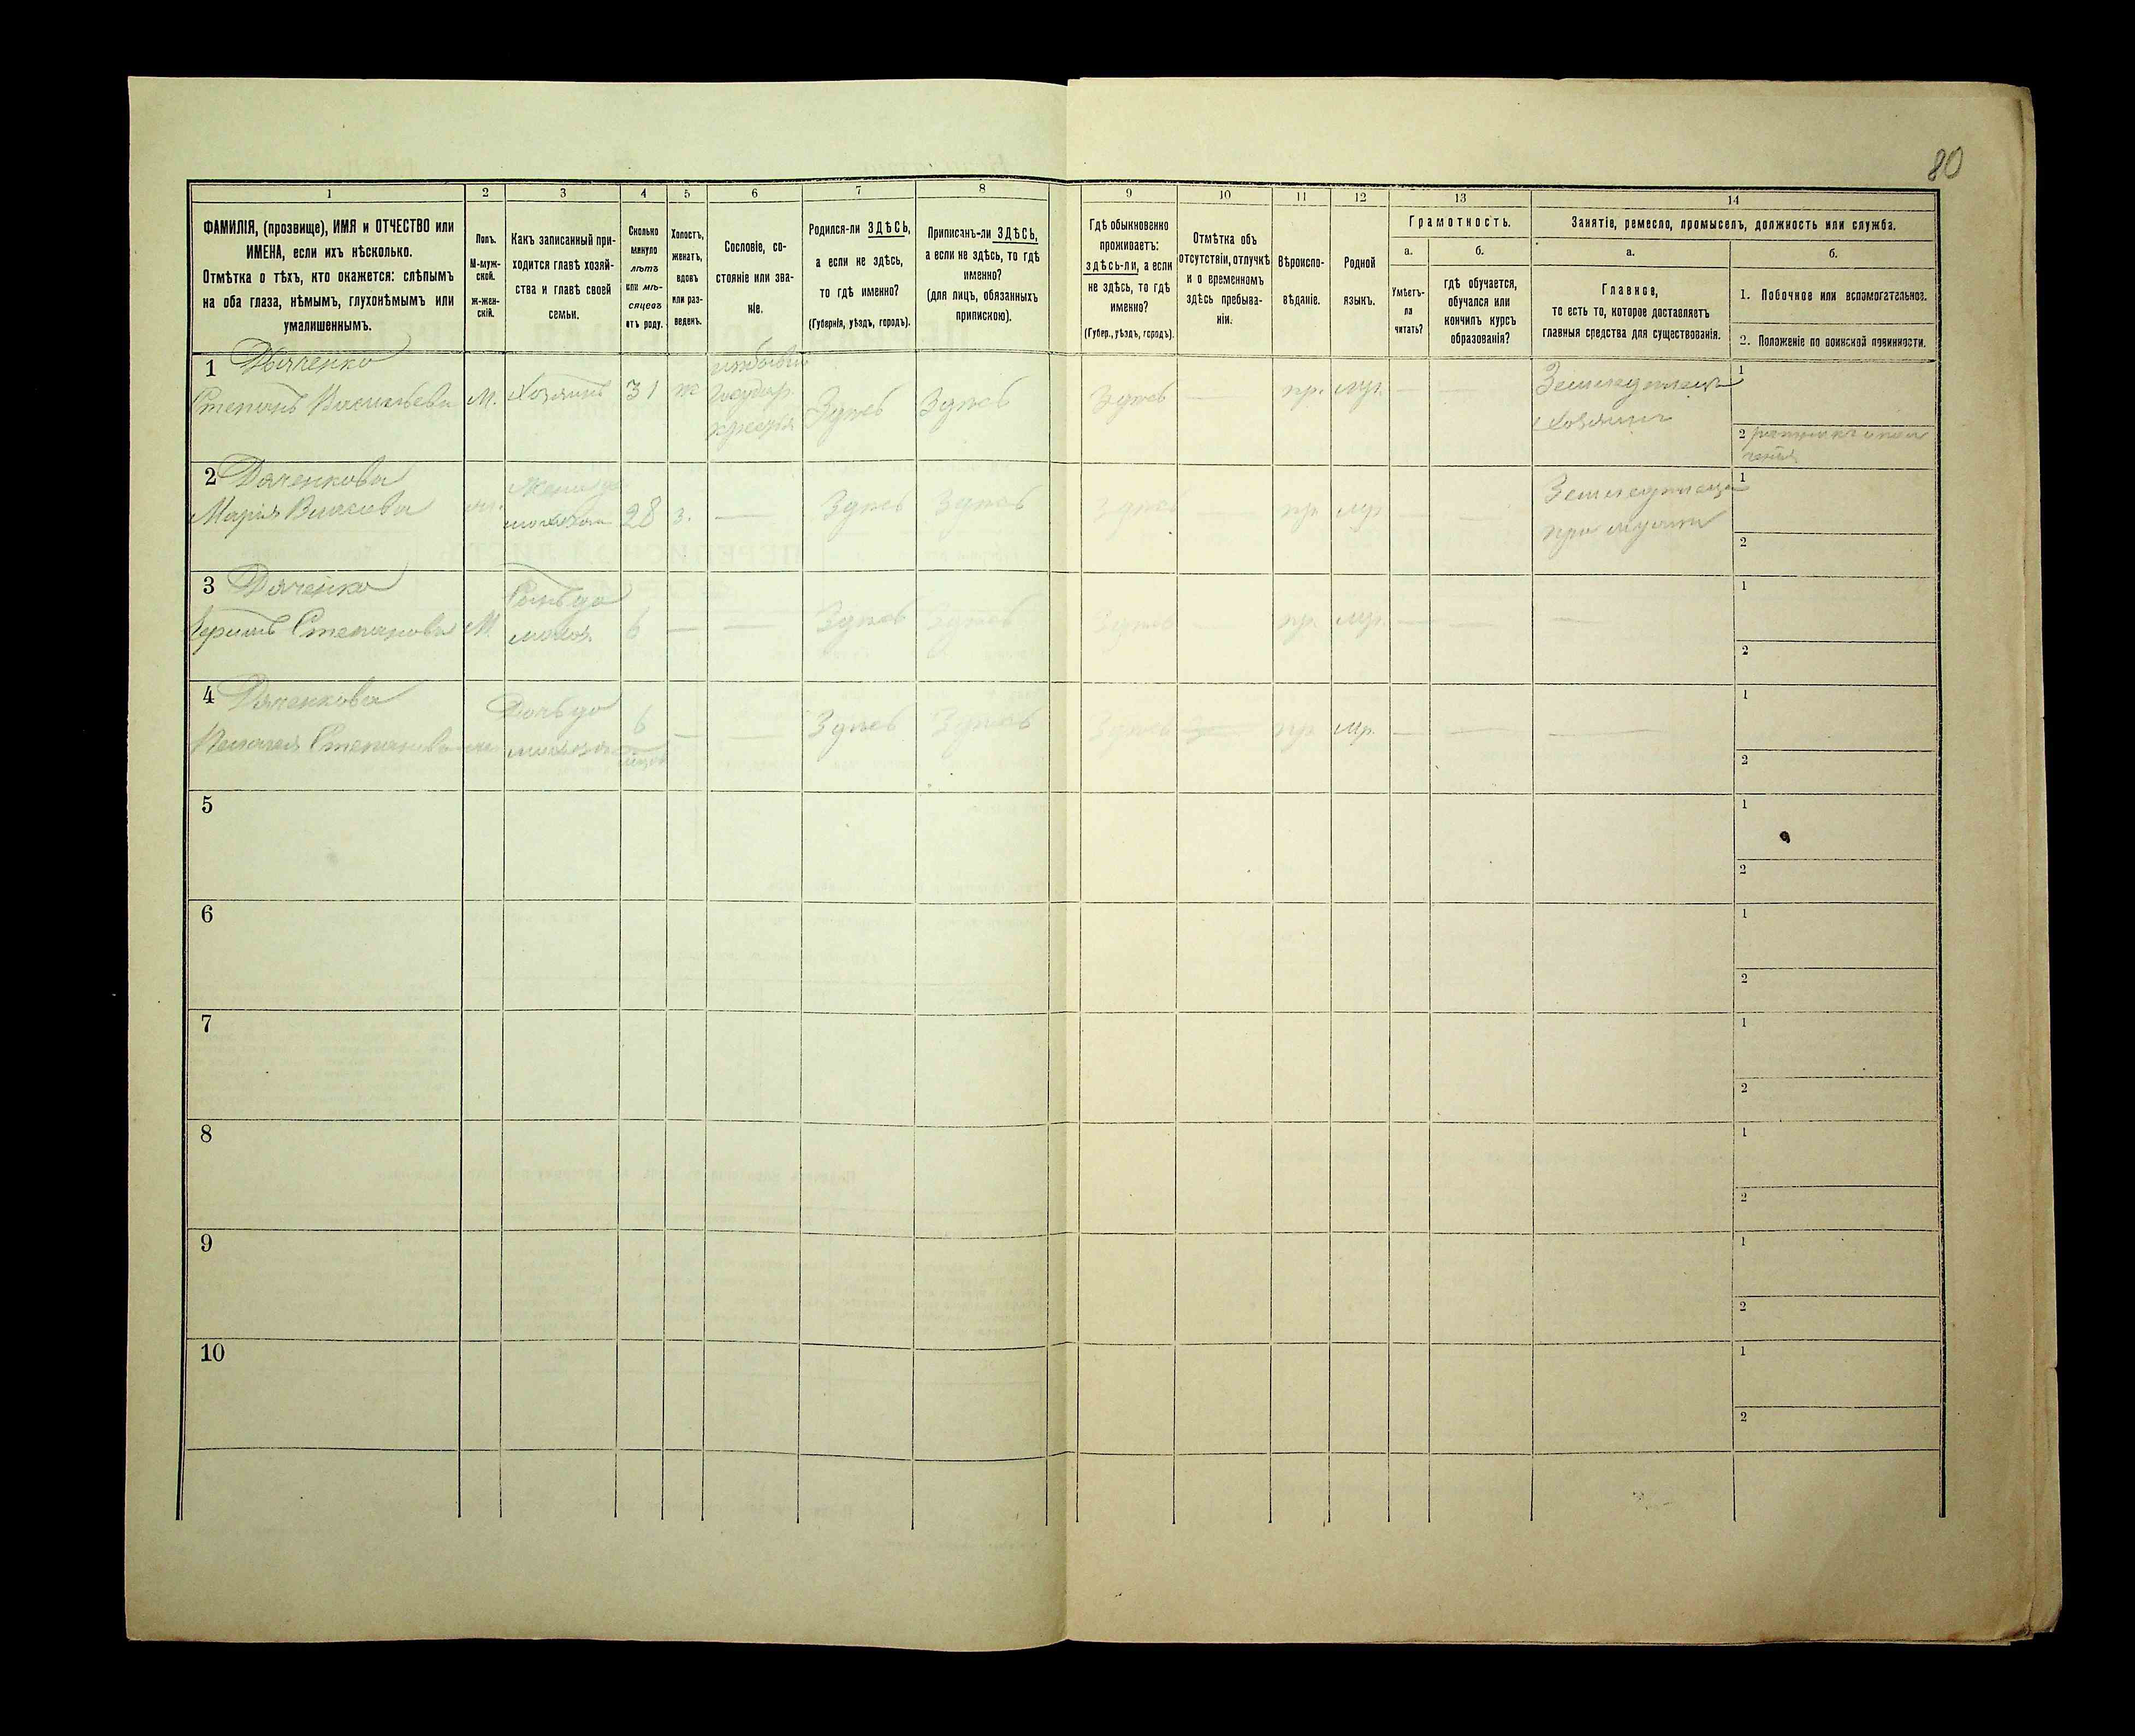 80
1
2
3
4
5
6
7
8
9
10
11
12
13
14
ФАМИЛІЯ, (прозвище), ИМЯ и ОТЧЕСТВО или
ИМЕНА, если ихъ нѣсколько.
Отмѣтка о тѣхъ, кто окажется: слѣпымъ
на оба глаза, нѣмымъ, глухонѣмымъ или
умалишеннымъ.
Полъ.
М-муж-
ской.
ж-жен-
скій.
Какъ записанный при-
ходится главѣ хозяй-
ства и главѣ своей
семьи.
Сколько
минуло
лѣтъ
или мѣ-
сяцевъ
отъ роду.
Холостъ,
женатъ,
вдовъ
или раз-
веденъ.
Сословіе, со-
стояніе или зва-
ніе.
Родился-ли ЗДѢСЬ,
а если не здѣсь,
то гдѣ именно?
(Губернія, уѣздъ, городъ).
Приписанъ-ли ЗДѢСЬ,
а если не здѣсь, то гдѣ
именно?
(для лицъ, обязанныхъ
припискою).
Гдѣ обыкновенно
проживаетъ:
здѣсь-ли, а если
не здѣсь, то гдѣ
именно?
(Губер., уѣздъ, городъ).
Отмѣтка объ
отсутствіи, отлучкѣ
и о временномъ
здѣсь пребыва-
ніи.
Вѣроиспо-
вѣданіе.
Родной
языкъ.
Грамотность.
а.
Умѣетъ-
ли
читать?
б.
гдѣ обучается,
обучался или
кончилъ курсъ
образованія?
Занятіе, ремесло, промыселъ, должность или служба.
а.
Главное,
то есть то, которое доставляетъ
главныя средства для существованія.
б.
1. Побочное или вспомогательное.
2. Положеніе по воинской повинности.
1 Дяченко
Степанъ Васильевъ М. Хозяинъ 31 ж
Государ.
Здѣсь Здѣсь Здѣсь — пр. мр. — —
Земледѣлецъ
Хозяинъ
1
2
2 Дяченкова
Марія
Жена
28 з. — Здѣсь Здѣсь Здѣсь — пр. мр — —
при мужи
1
2
3 Дяченко
Степановъ М.
Сынъ
6 — — Здѣсь Здѣсь Здѣсь — пр. мр. — — —
1
2
4 Дяченкова
Степанова
Дочь
6
— — Здѣсь Здѣсь Здѣсь пр мр. — — —
1
2
5
1
2
6
1
2
7
1
2
8
1
2
9
1
2
10
1
2